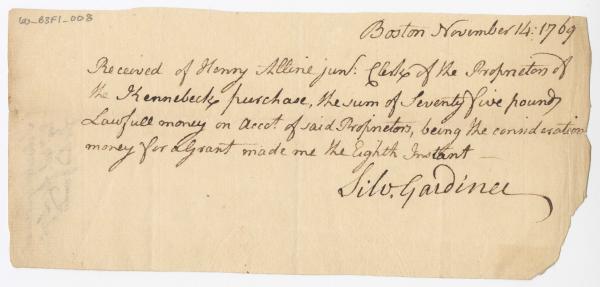 W_B3F1_008
Boston November 14: 1769
Received of Henry Alline junr: Clerk of the Proprietors of
the Kennebeck purchase, the sum of Seventy five pounds
Lawfull money on Accot of said Proprietors, being the consideration
money for a Grant made me the Eighth Instant —
Silv. Gardiner